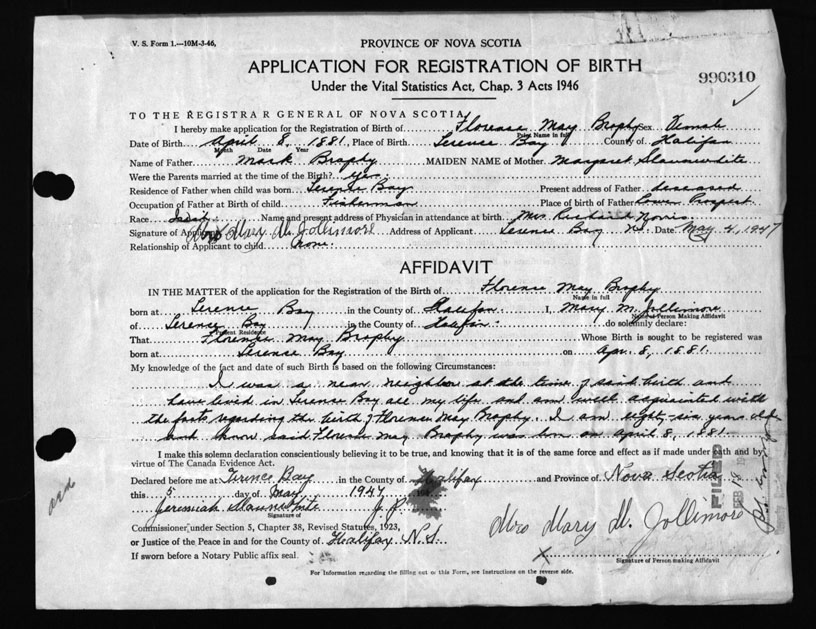 V. S. Form 1.—10M-3-46.
PROVINCE OF NOVA SCOTIA
APPLICATION FOR REGISTRATION OF BIRTH
990310
Under the Vital Statistics Act, Chap. 3 Acts 1946
TO THE REGISTRAR GENERAL OF NOVA SCOTIA
I hereby make application for the Registration of Birth of Florence May Brophy Sex Female
Print Name in full
Date of Birth April 8, 1881. Place of Birth Terence Bay County of Halifax
Month Date Year
Name of Father Mark Brophy MAIDEN NAME of Mother Margaret Slaunwhite
Were the Parents married at the time of the Birth? Yes.
Residence of Father when child was born Terence Bay Present address of Father deceased
Occupation of Father at Birth of child Fisherman Place of birth of Father Lower Prospect
Race Name and present address of Physician in attendance at birth Mrs. Richard Norris
Signature of Applicant Mrs Mary M. Jollimore Address of Applicant Terence Bay Date May 1947
Relationship of Applicant to child None.
AFFIDAVIT
IN THE MATTER of the application for the Registration of the Birth of Florence May Brophy
Name in full
born at Terence Bay in the County of Halifax I, Mary M. Jollimore
Name of Person Making Affidavit
of Terence Bay in the County of Halifax do solemnly declare:
Present Residence
That Florence May Brophy Whose Birth is sought to be registered was
born at Terence Bay on Apr. 8, 1881.
My knowledge of the fact and date of such Birth is based on the following Circumstances:
I was a near neighbor at the time of said birth and
have lived in Terence Bay all my life and am well acquainted with
the facts regarding the birth of Florence May Brophy. I am eighty-six years old
and know said Florence May Brophy was born on April 8, 1881.
I make this solemn declaration conscientiously believing it to be true, and knowing that it is of the same force and effect as if made under oath and by
virtue of The Canada Evidence Act.
Declared before me at Terence Bay in the County of Halifax and Province of Nova Scotia
this 5 day of May 1947
Jeremiah Slaunwhite J. P.
Signature of
Commissioner, under Section 5, Chapter 38, Revised Statutes, 1923,
or Justice of the Peace in and for the County of Halifax N.S.
If sworn before a Notary Public affix seal
FILED
FEB
Mrs Mary M. Jollimore
X
Signature of Person making Affidavit
For Information regarding the filling out of this Form, see Instructions on the reverse side.